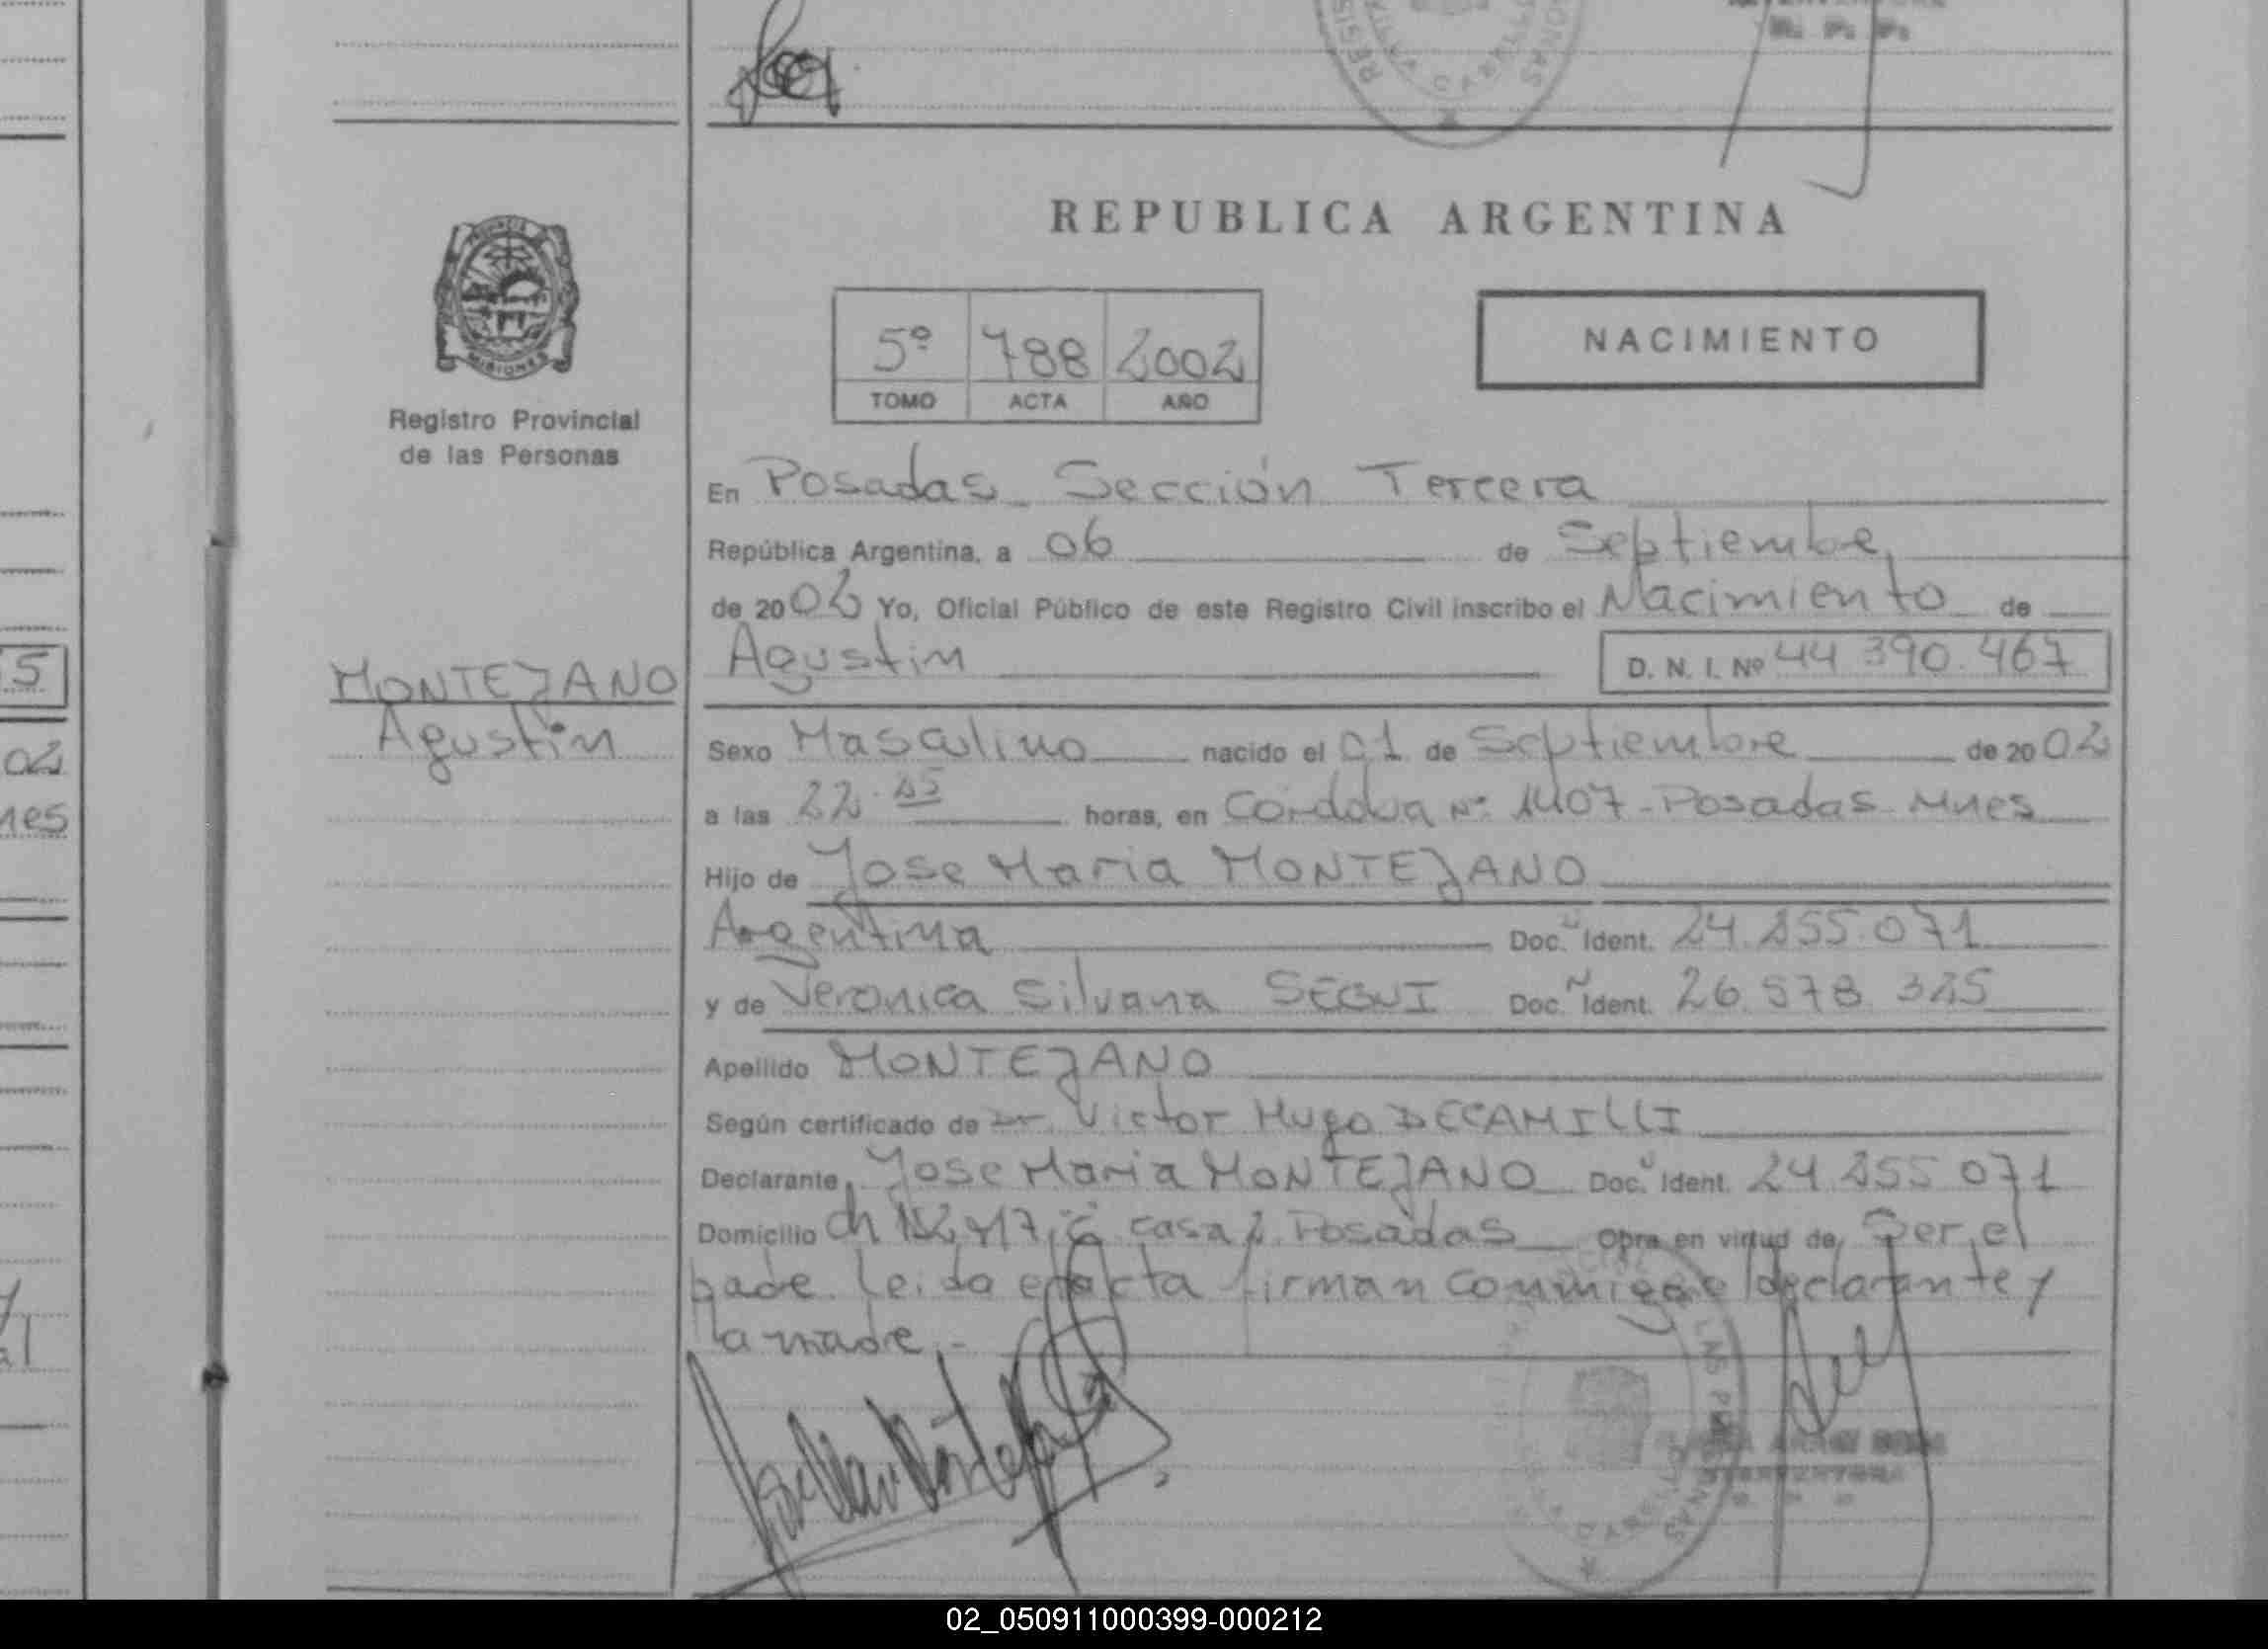 R. P. P.
REPUBLICA ARGENTINA
PROVINCIA
MISIONES
Registro Provincial
de las Personas
5º 788 2002
TOMO ACTA AÑO
NACIMIENTO
En Posadas Sección Tercera
República Argentina, a 06 de Septiembre
de 2002 Yo, Oficial Público de este Registro Civil inscribo el Nacimiento de
Agustin D. N. I. Nº 44 390.467
MONTEJANO
Agustin
Sexo Masculino nacido el 01 de Septiembre de 2002
a las 22 horas, en Cordoba Nº 1407 - Posadas Mnes
Hijo de Jose Maria MONTEJANO
Argentina Doc. Ident. 24.255.071
y de Veronica Silvana SEGUI Doc. Ident. 26.578.325
Apellido MONTEJANO
Según certificado de Dr. Victor Hugo DECAMILLI
Declarante Jose Maria MONTEJANO Doc. Ident. 24.255 071
Domicilio ch casa 2 Posadas Obra en virtud de Ser el
pade. Leida el acta firman conmigo el declarante y
la madre.-
5
02
nes
02_050911000399-000212